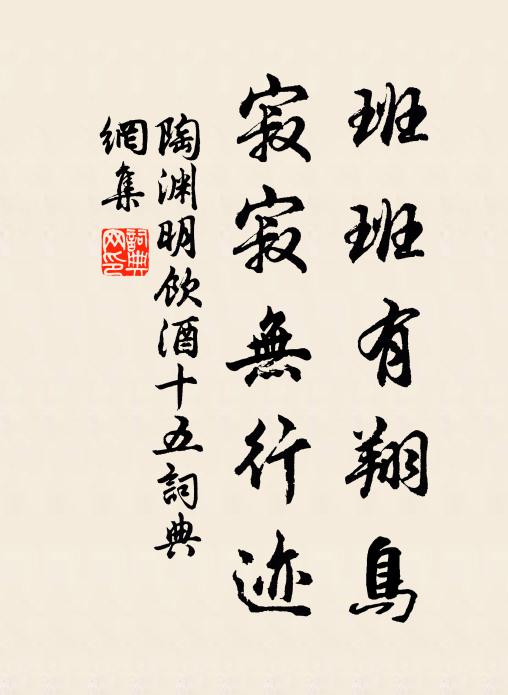 班班有翔鳥
寂寂無行迹
陶渊明飲酒十五詞典
網集
詞典
网印